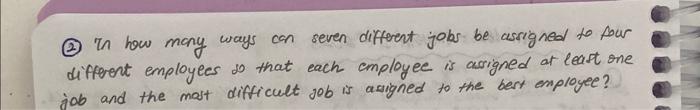 ② In how many ways can seven different jobs be assigned to four
different employees so that each employee is assigned at least one
job and the most difficult job is assigned to the best employee?